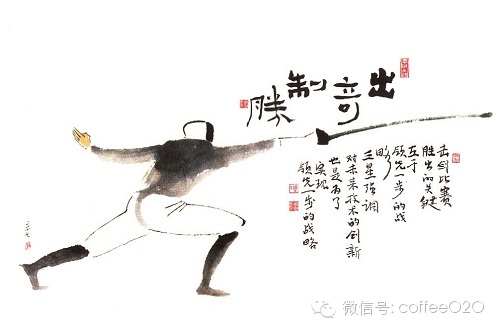 出奇制勝
击剑比赛
胜出的关键
在于
领先一步的战
略
三星强调
对未来技术的创新
也是为了
实现
领先一步的战略
微信号: coffeeO2O